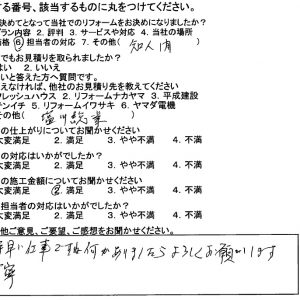 する番号、該当するものに丸をつけてください。
決めてとなって当社でのリフォームをお決めになりましたか？
プラン内容 2. 評判 3. サービスや対応 4. 当社の場所
価格 6 担当者の対応 7. その他( 知人
でもお見積りを取られましたか？
はい 2. いいえ
いと答えた方へ質問です。
えなければ、他社のお見積り先を教えてください
フレッシュハウス 2. リフォームナカヤマ 3. 平成建設
テンイチ 5. リフォームイワサキ 6. ヤマダ電機
その他(
の仕上がりについてお聞かせください
大変満足 2. 満足 3. やや不満 4. 不満
の対応はいかがでしたか？
大変満足 2. 満足 3. やや不満 4. 不満
の施工金額についてお聞かせください
大変満足 2. 満足 3. やや不満 4. 不満
担当者の対応はいかがでしたか？
大変満足 2. 満足 3. やや不満 4. 不満
他ご意見、ご要望、ご感想をお聞かせください。
早い仕事です何かありましたらよろしくお願いします
寧